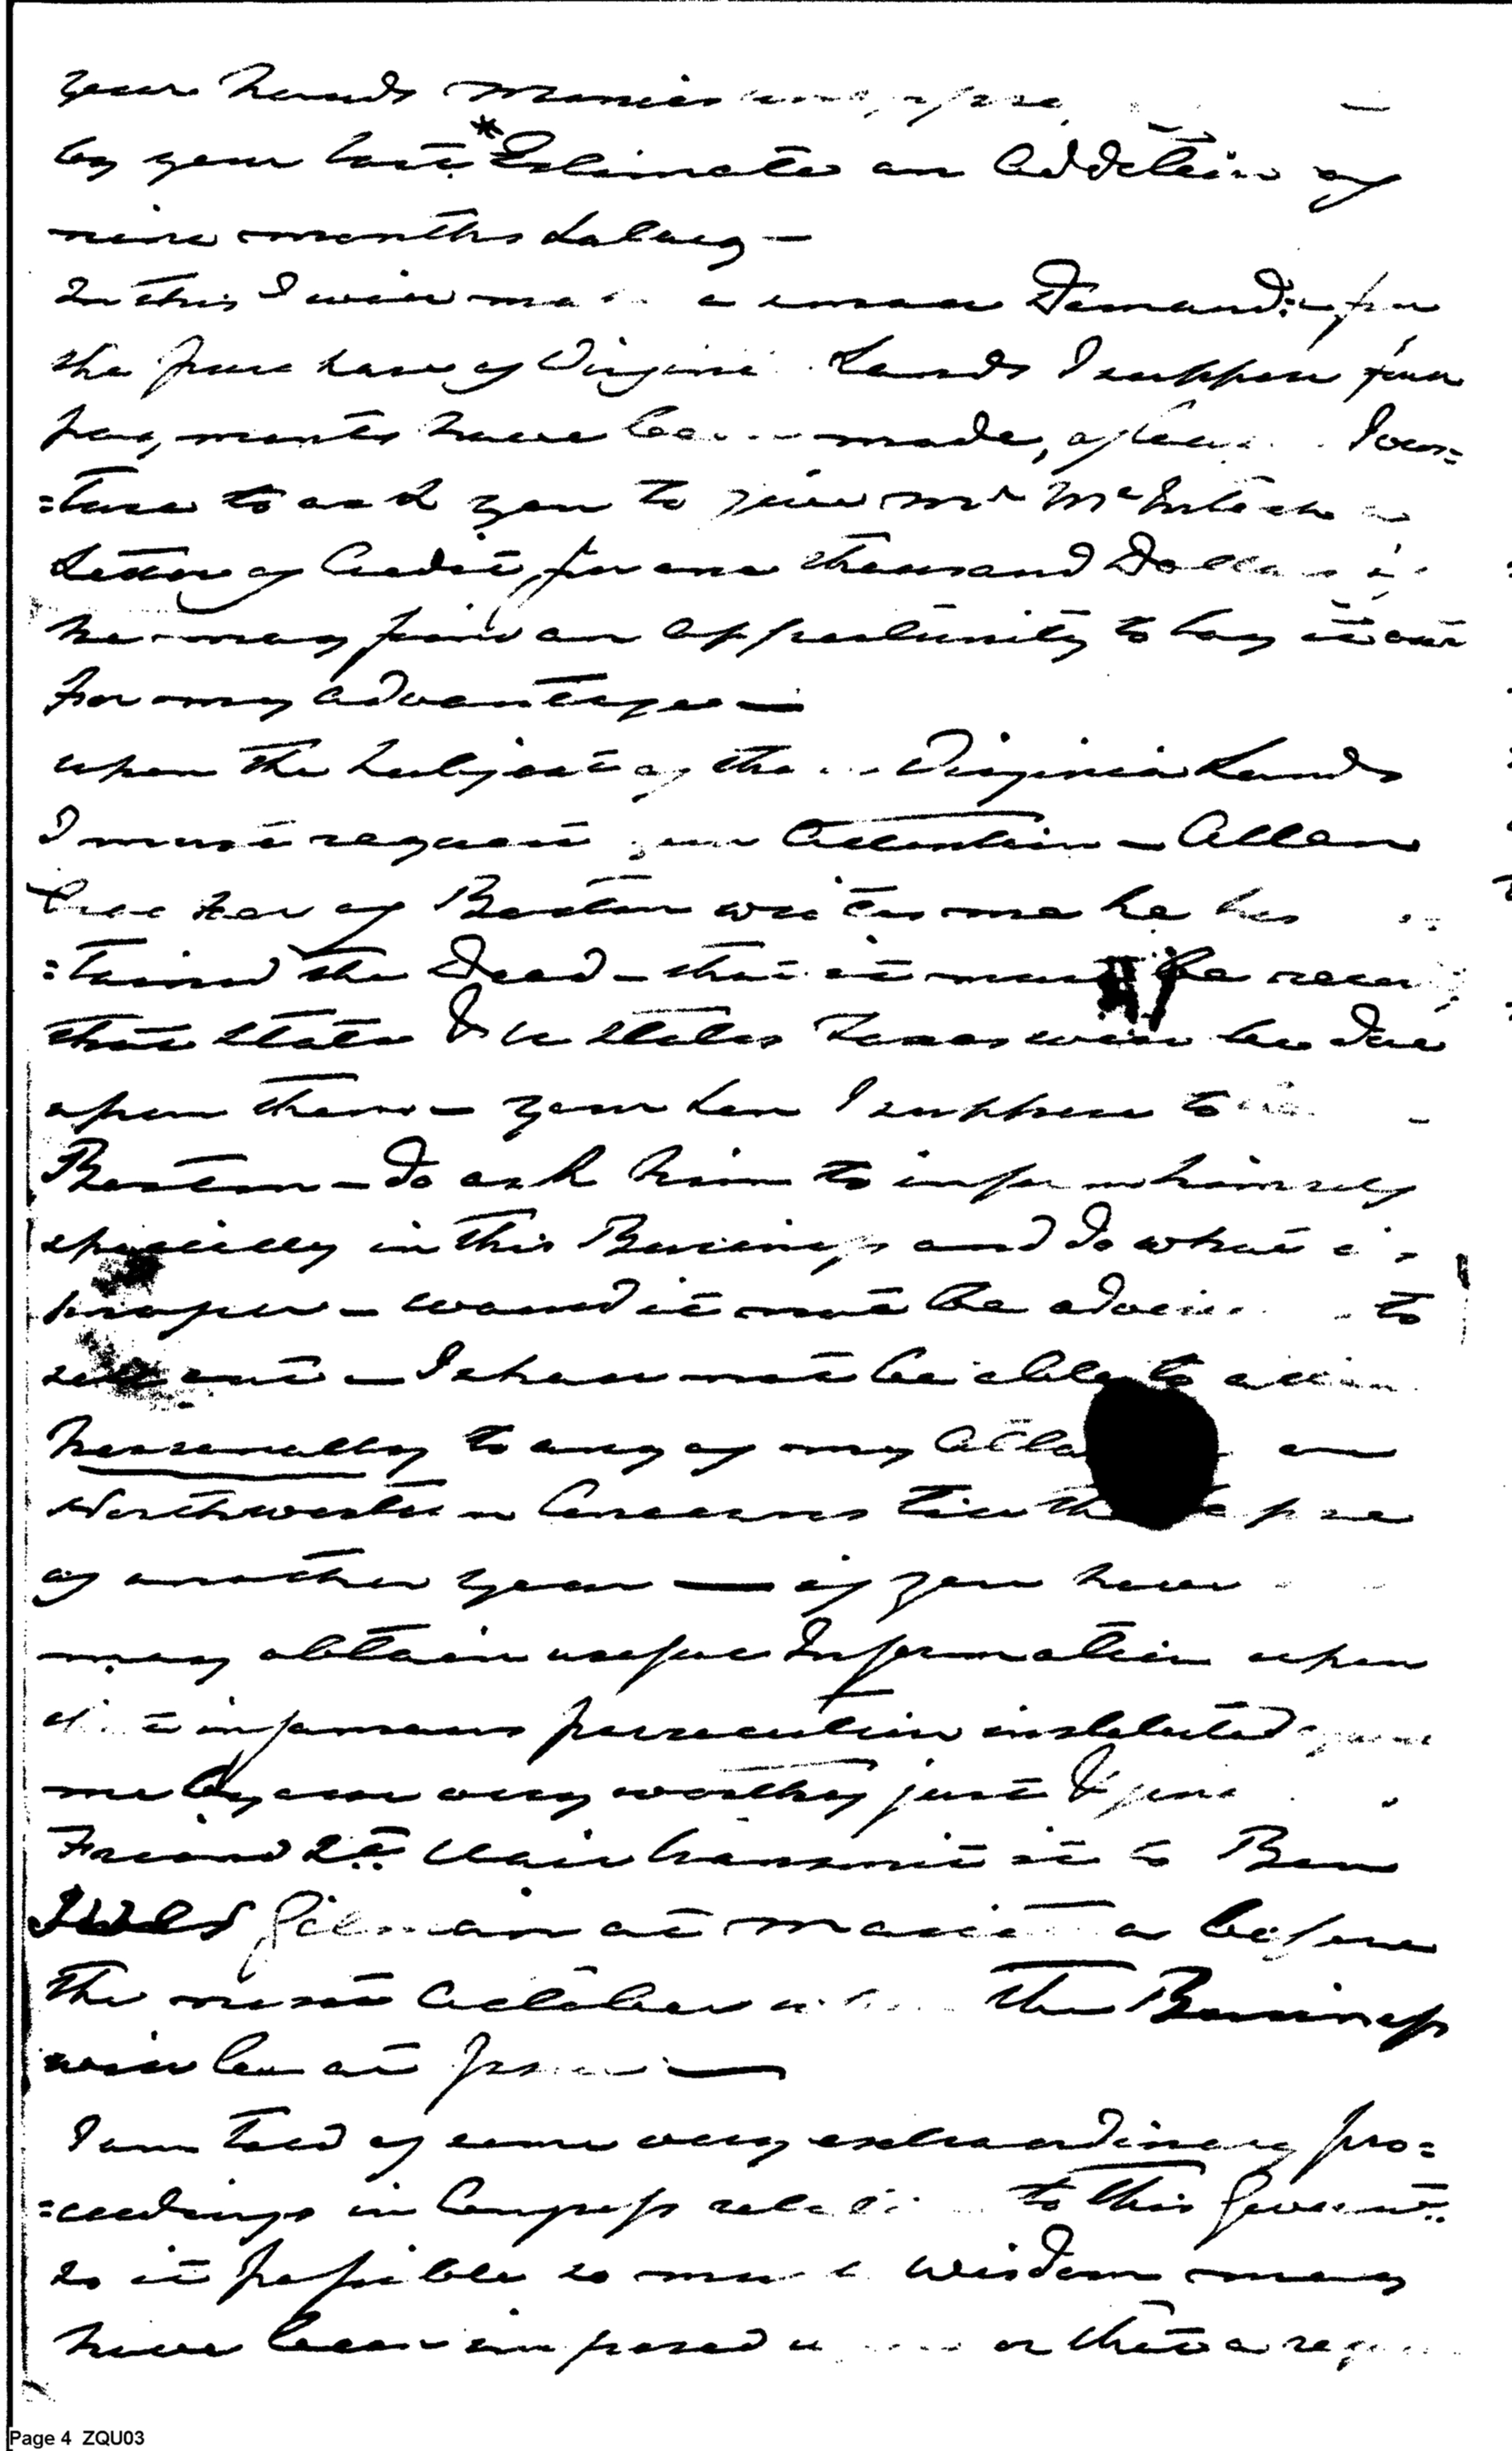 your hands Monies
by your last * Estimate an Addition of
nine months Salary —
In this I will ma a small Demand: for
the purchase of Virginia Lands I suppose four
payments have been made, I ven=
=ture to ask you to give Mr McIntosh a
Letter of Credit for one thousand Dollars
he may find an opportunity to lay it out
for my advantage —
upon the Subject of the Virginia Lands
I must request your Attention — Allan
of Boston writes me he has
=tained the Deed — that it must be
that State & U States Taxes will be due
upon them — your Son I suppose to
Boston — do ask him to inform himself
specially in this Business and do what is
proper — would it not be to
sell out — I shall not be able to
personally to any of my on
Northwestern Concerns till the
of another year — if you have
may obtain useful Information upon
infamous persecution instituted
me by our very worthy just &
Friend St. Clair transmit it to Ben
Ives Gilman at Marietta before
the next October the Business
will be at
I am told of some very extraordinary pro=
=ceedings in Congress to this Governmt.
is it possible so much wisdom may
have been imposed
Page 4 ZQU03